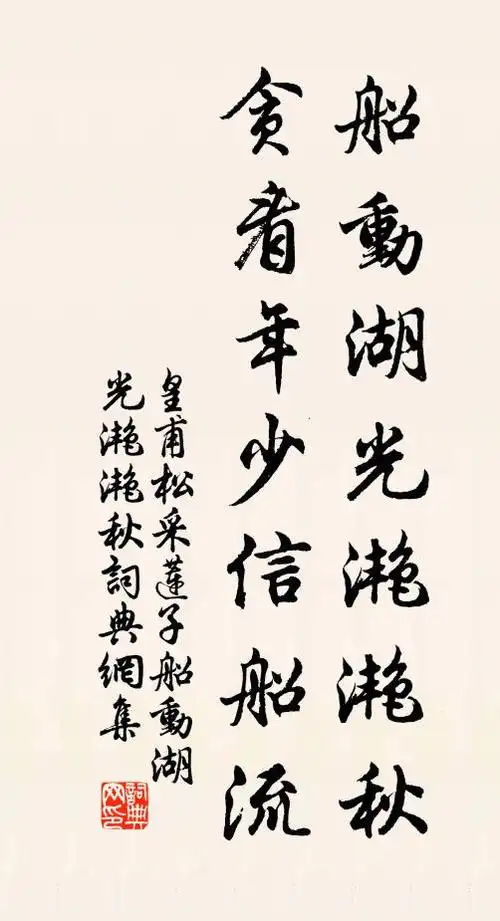 船動湖光灔灔秋
貪看年少信船流
皇甫松采蓮子船動湖
光灔灔秋詞典網集
詞典
网印